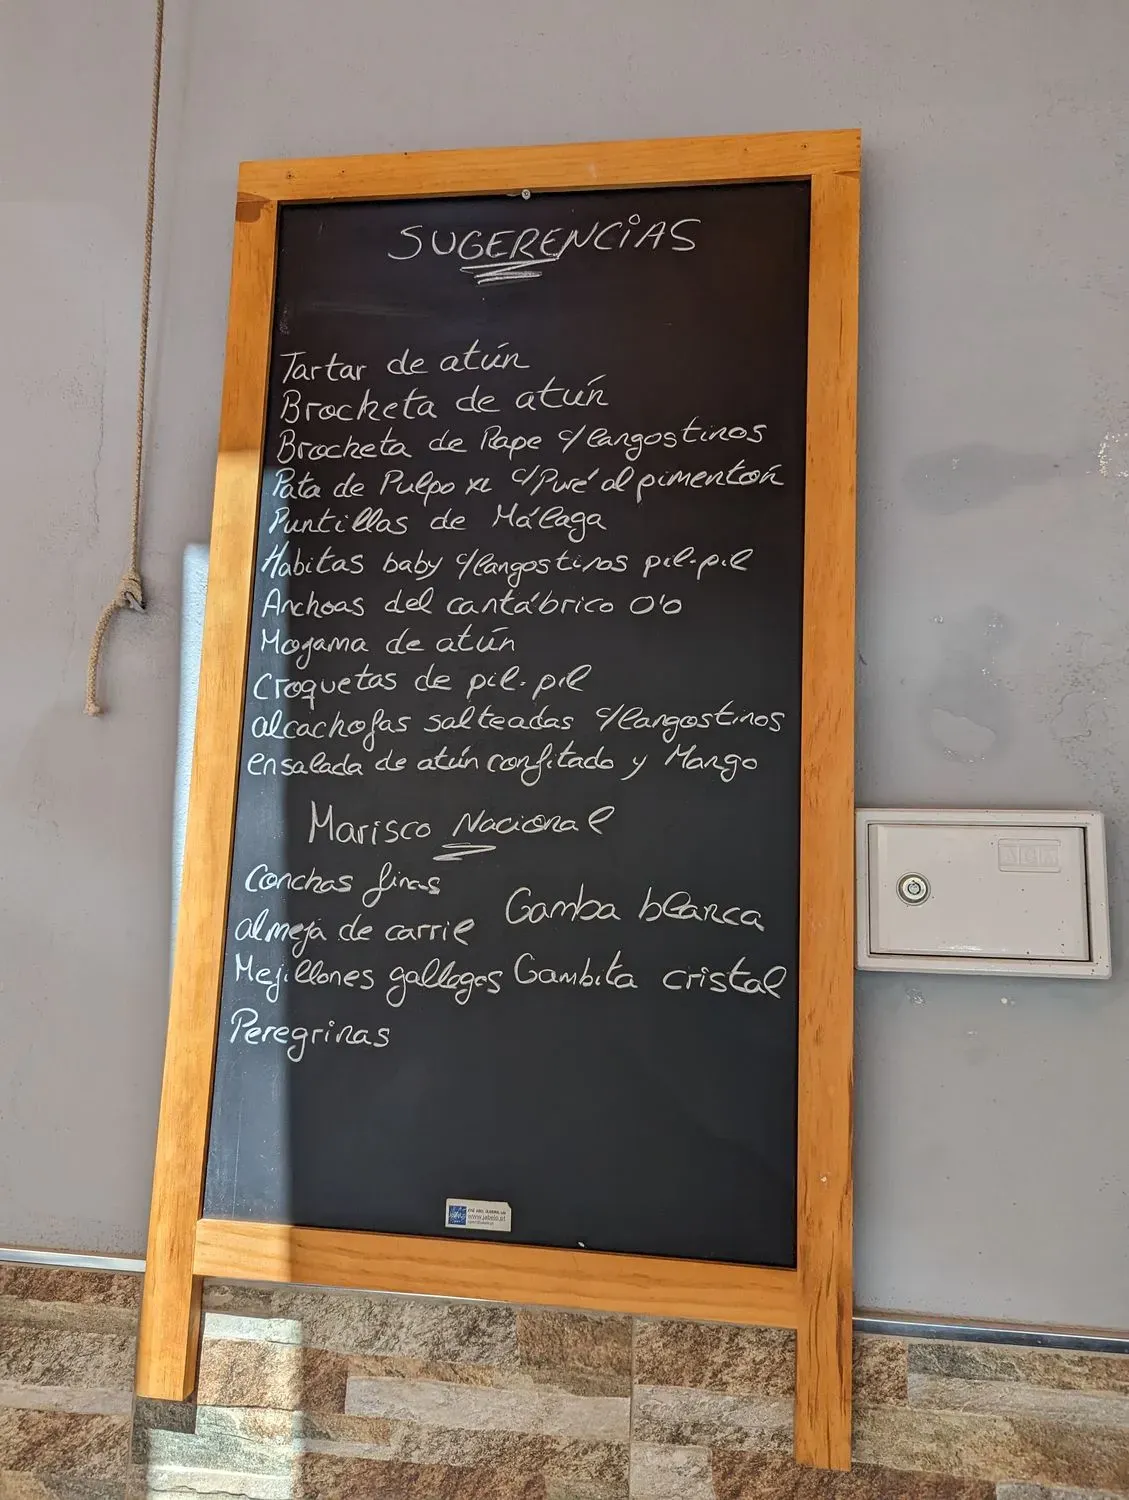 SUGERENCiAS
Tartar de atún
Brocheta de atún
Brocheta de Rape c/langostinos
Pata de Pulpo XL c/Puré al pimentón
Puntillas de Málaga
Habitas baby c/langostinos pil-pil
Anchoas del cantábrico 0'0
Mogama de atún
Croquetas de pil-pil
alcachofas salteadas c/langostinos
ensalada de atún confitado y Mango
Marisco Nacional
Conchas finas
Gamba blanca
almeja de carril
Mejillones gallegos Gambita cristal
Peregrinas
www.jabelo.pt